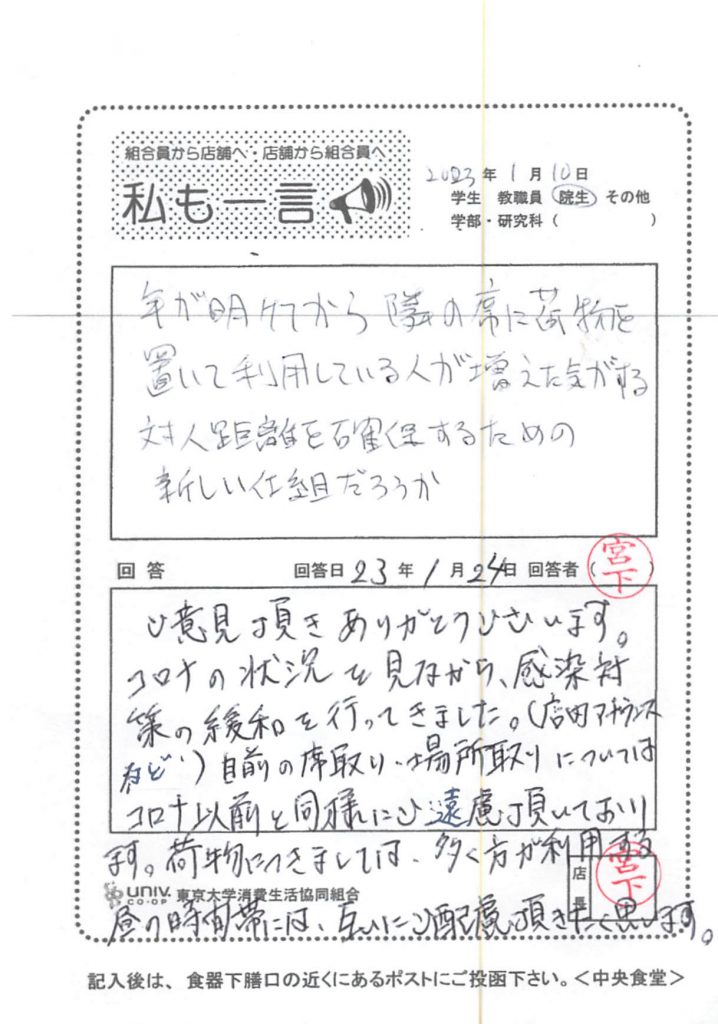 組合員から店舗へ・店舗から組合員へ
私も一言
2023年1月10日
学生 教職員 院生 その他
学部・研究科（　　　　　）
年が明けてから隣の席に荷物を
置いて利用している人が増えた気がする
対人距離を確保するための
新しい仕組だろうか
回答 回答日23年1月24日 回答者（宮下）
ご意見頂きありがとうございます。
コロナの状況を見ながら、感染対
策の緩和を行ってきました。（店内アナウンス
など）自前の席取り・場所取りについては
コロナ以前と同様にご遠慮頂いており
ます。荷物につきましては、多く方が利用する
店長 宮下
UNIV. CO-OP 東京大学消費生活協同組合
昼の時間帯には、互いにご配慮頂きたく思います。
記入後は、食器下膳口の近くにあるポストにご投函下さい。＜中央食堂＞